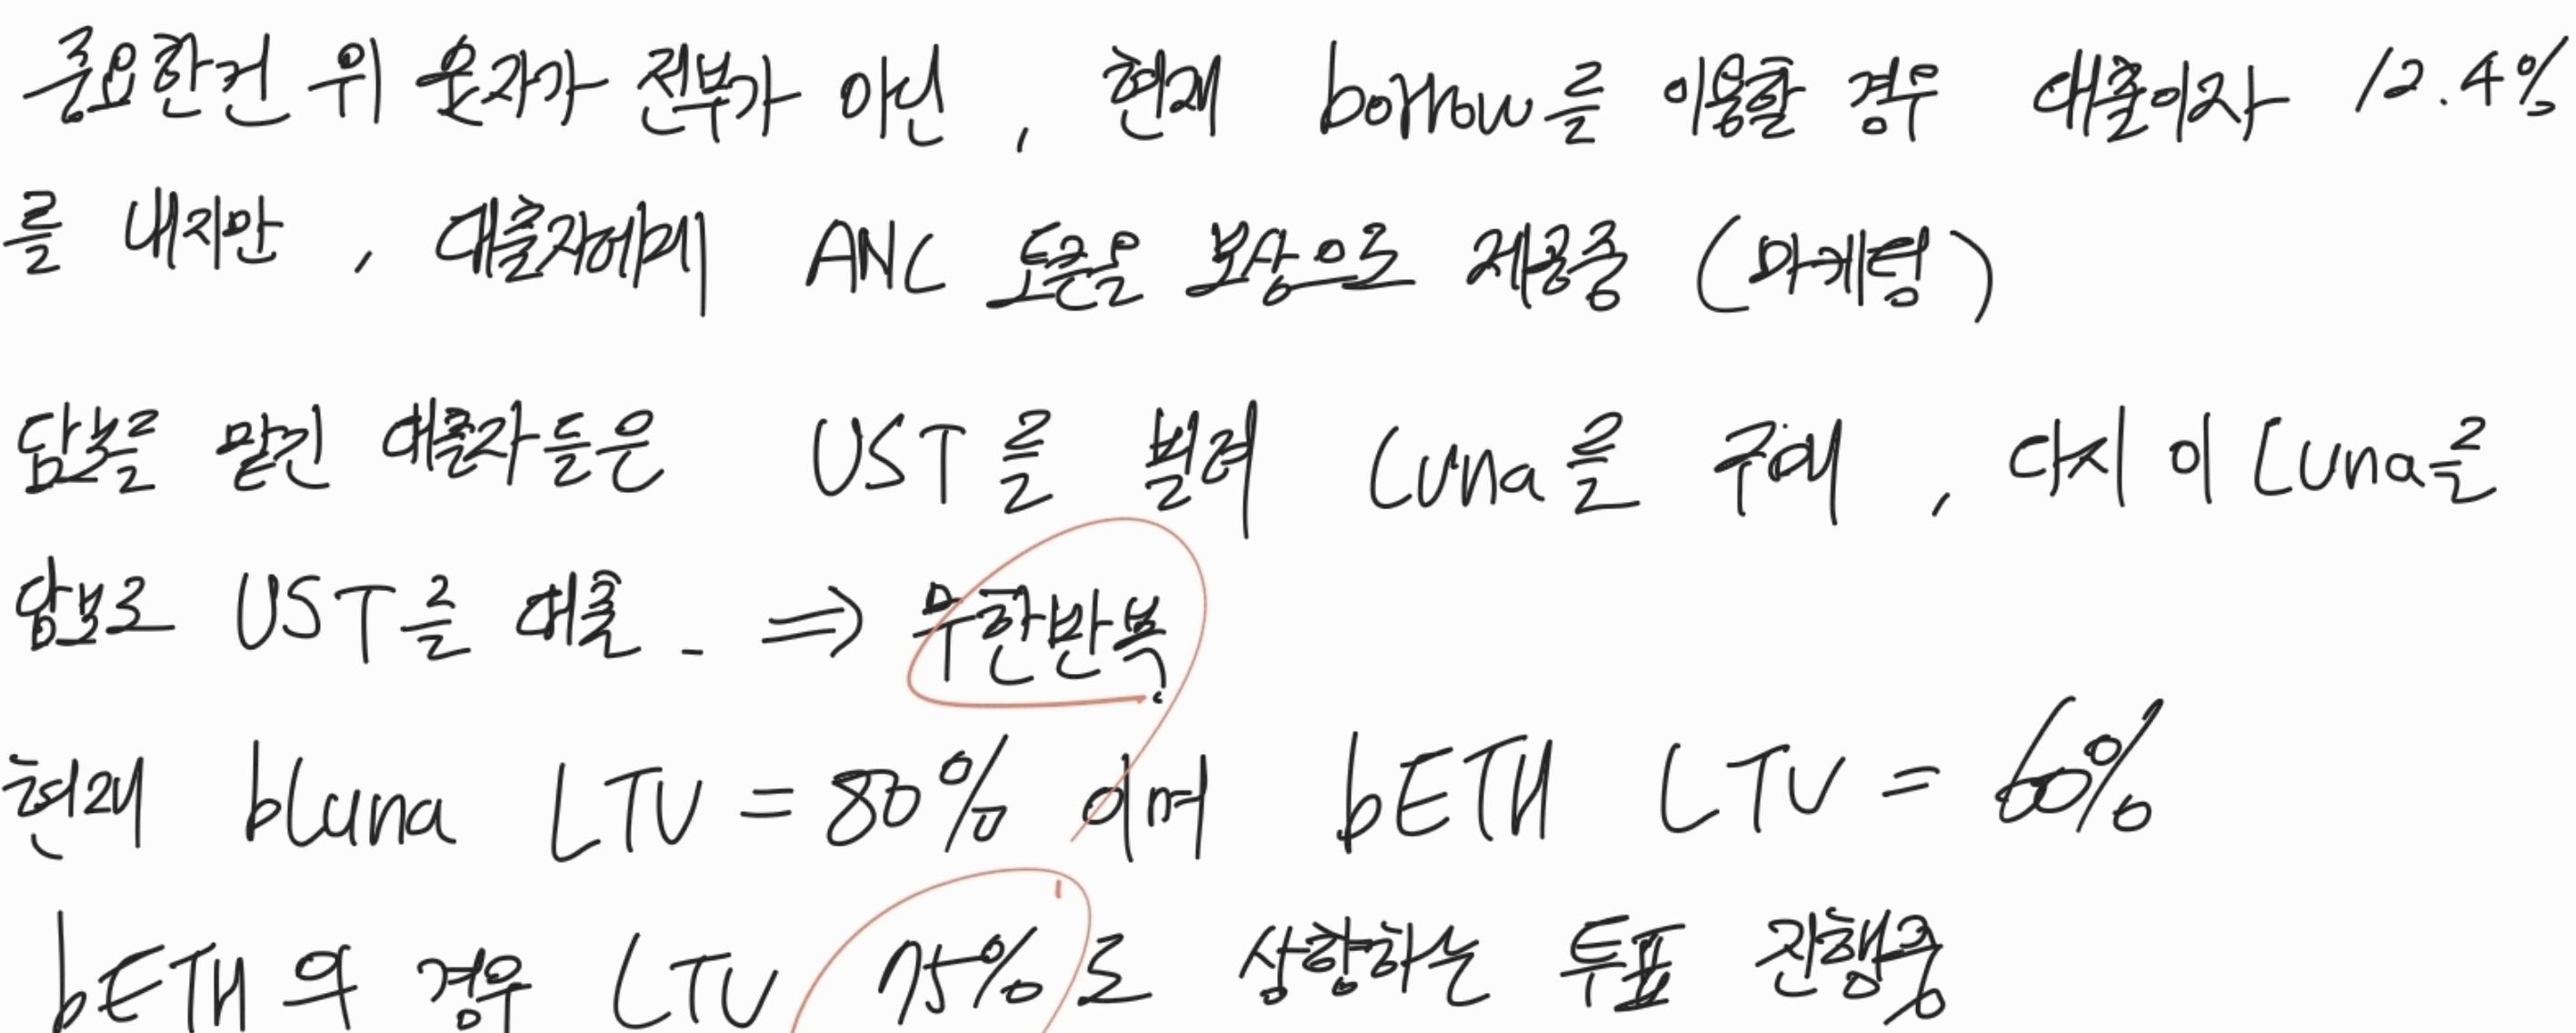 중요한건 위 숫자가 전부가 아닌, 현재 borrow를 이용할 경우 대출이자 12.4%
를 내지만, 대출자에게 ANC 토큰을 보상으로 제공중 (마케팅)
담보를 맡긴 대출자들은 UST를 빌려 Luna를 구매, 다시 이 Luna를
담보로 UST를 대출. ⇒ 무한반복.
현재 bLuna LTV = 80% 이며 bETH LTV = 60%
bETH의 경우 LTV 75%로 상향하는 투표 진행중